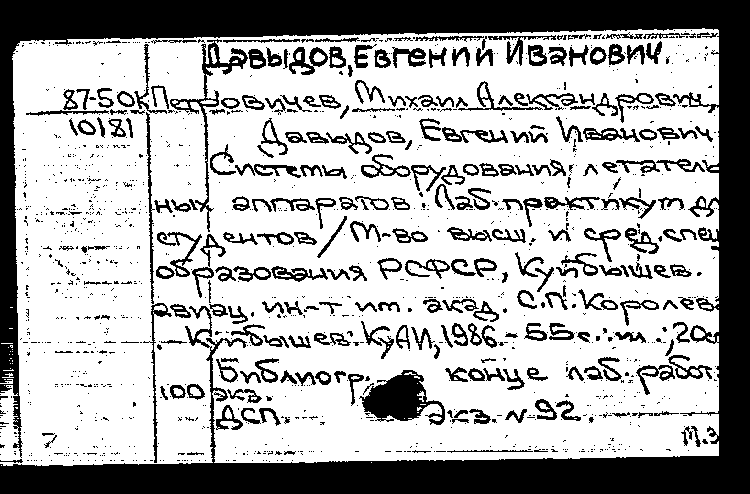 Давыдов, Евгений Иванович.
87-50к Петровичев, Михаил Александрович,
10181 Давыдов, Евгений Иванович
Системы оборудования летатель
ных аппаратов : Лаб. практикум дл
студентов / М-во высш. и сред. спец
образования РСФСР, Куйбышев.
авиац. ин-т им. акад. С.П. Королева
. - Куйбышев : КуАИ, 1986. - 55 с. : ил. ; 20см
Библиогр. конце лаб. работ
100 экз.
ДСП. Экз. N 92.
7 М.З